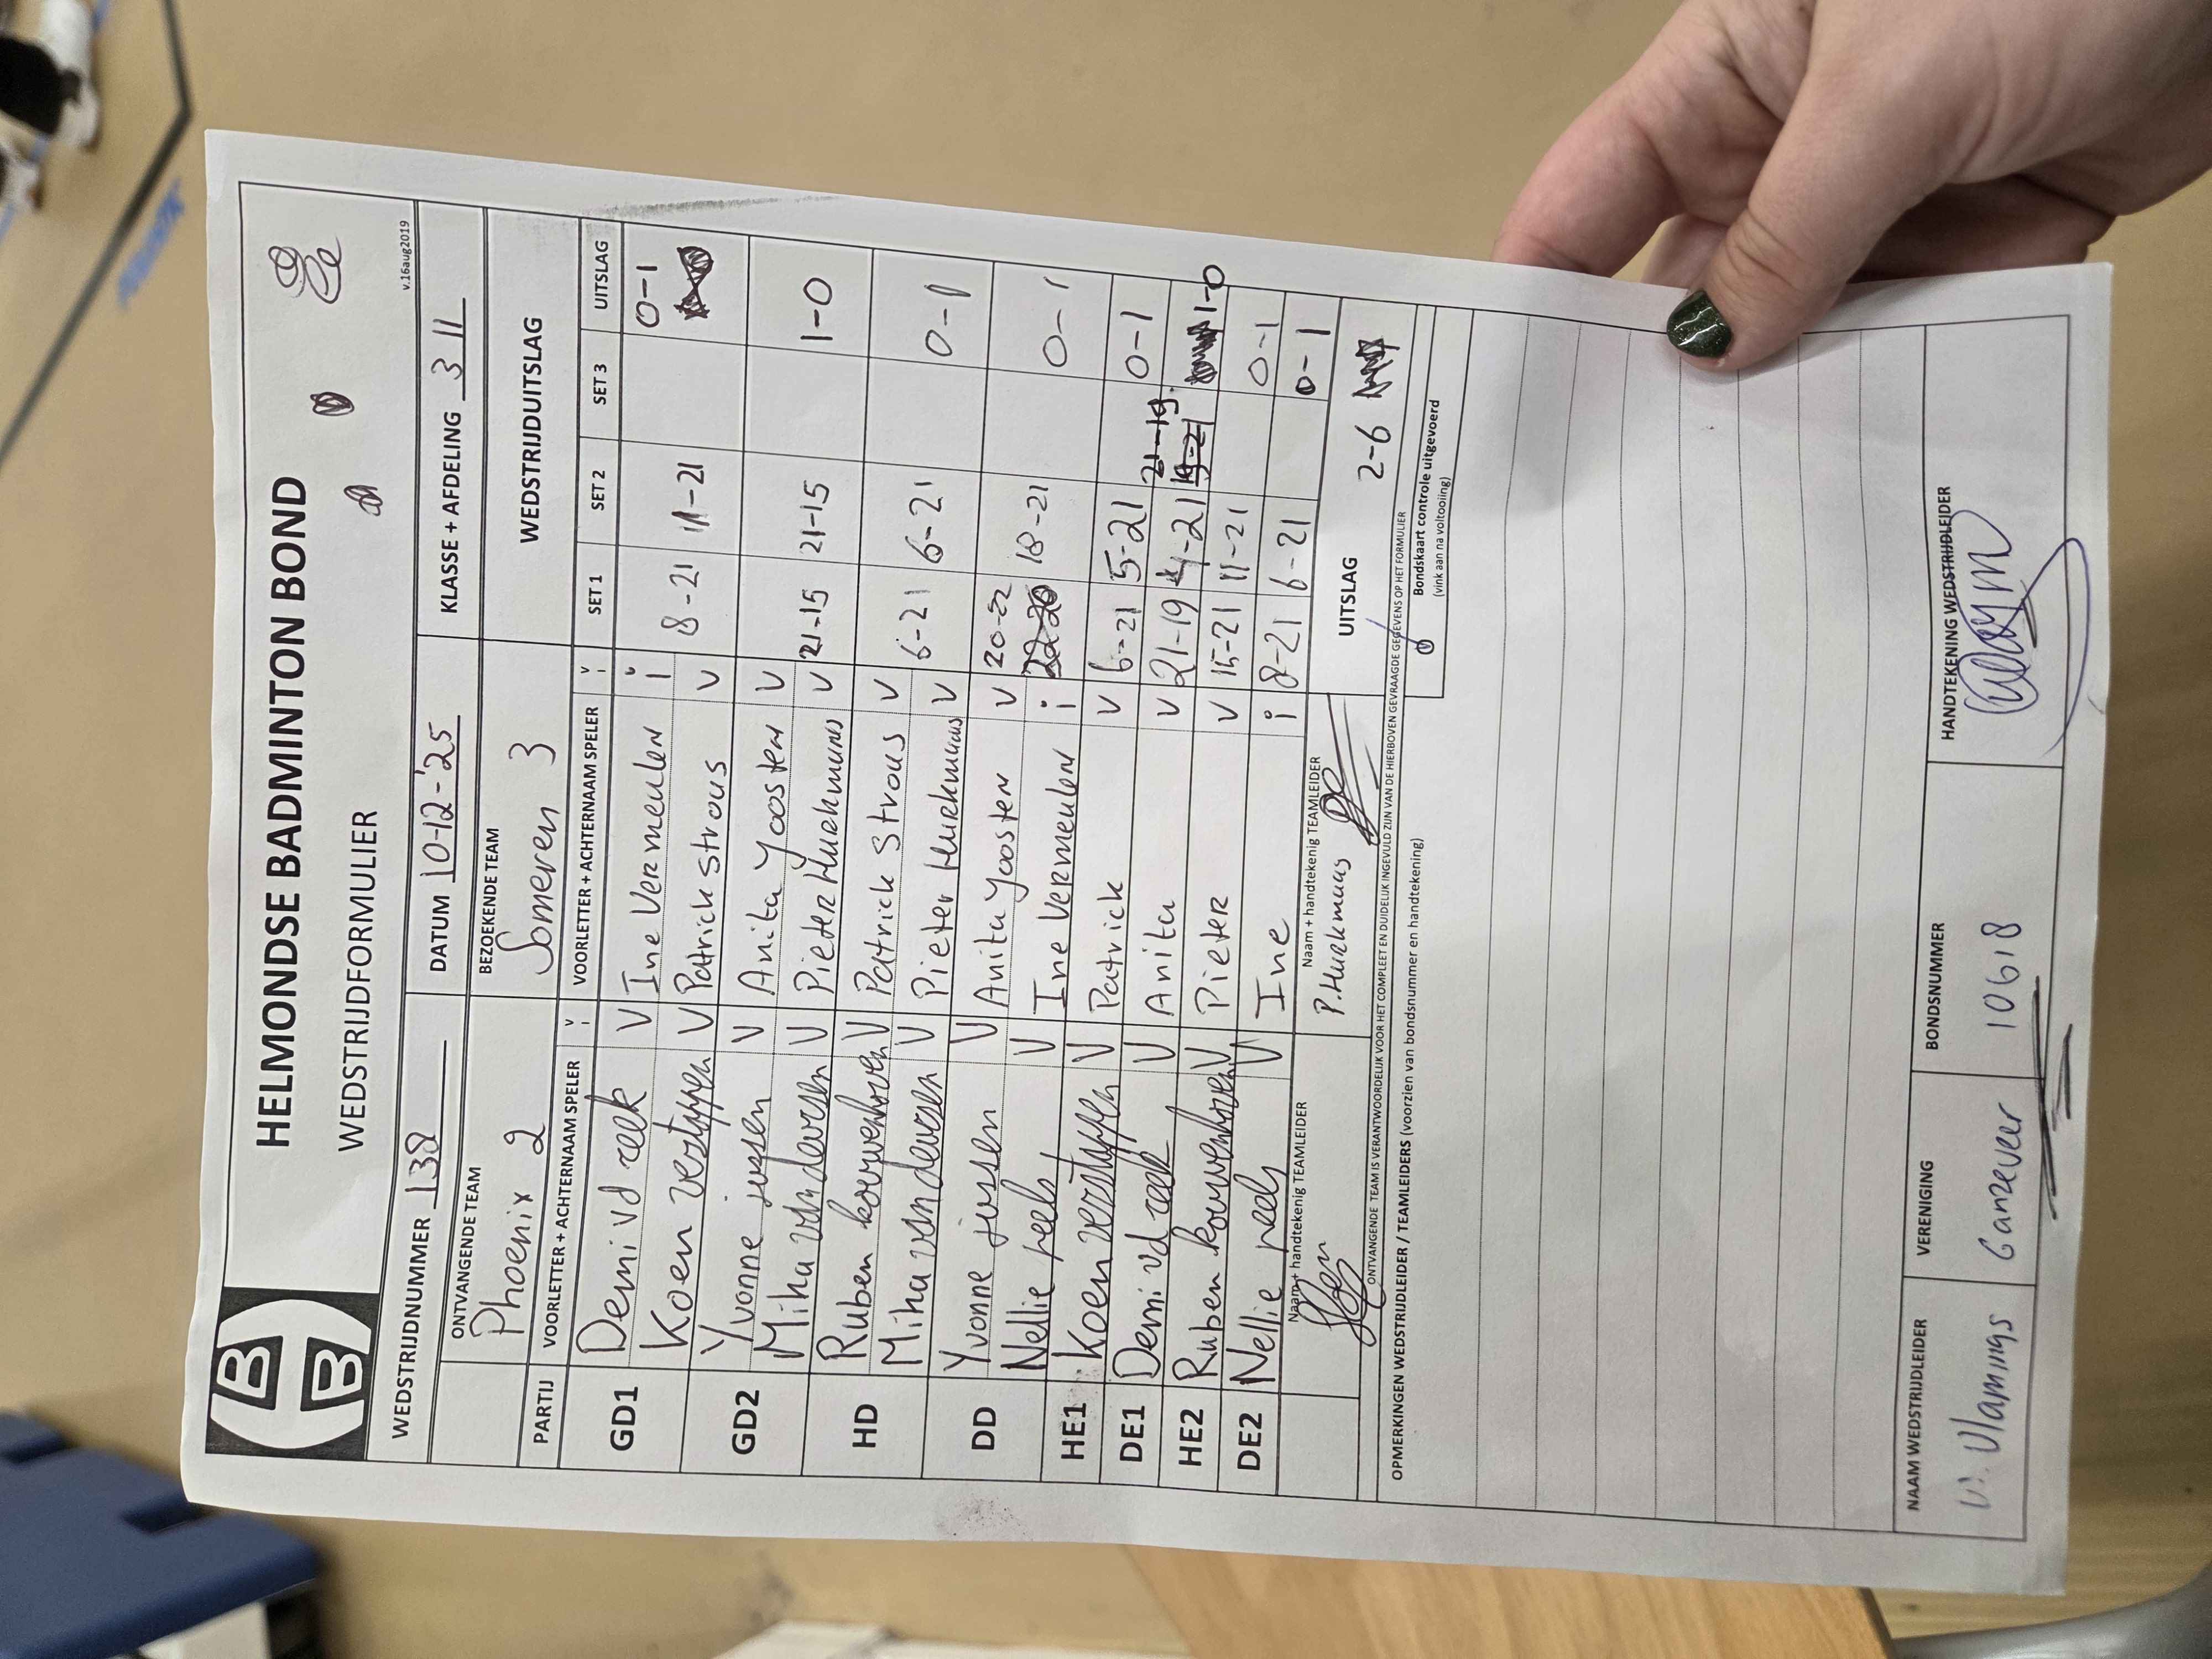 HELMONDSE BADMINTON BOND
WEDSTRIJDFORMULIER
v.16aug2019
WEDSTRIJDNUMMER 138 DATUM 10-12-'25 KLASSE + AFDELING 3 II
ONTVANGENDE TEAM BEZOEKENDE TEAM WEDSTRIJDUITSLAG
Phoenix 2 Someren 3
PARTIJ VOORLETTER + ACHTERNAAM SPELER V I VOORLETTER + ACHTERNAAM SPELER V I SET 1 SET 2 SET 3 UITSLAG
GD1 Demi vd reek V Ine Vermeulen i 0-1
Koen verstappen V Patrick Strous V 8-21 11-21
GD2 Yvonne jussen V Anita Joosten V
Miha van deursen V Pieter Hurkmans V 21-15 21-15 1-0
HD Ruben kouwenhoven V Patrick Strous V
Miha van deursen V Pieter Hurkmans V 6-21 6-21 0-1
DD Yvonne jussen V Anita Joosten V 20-22
Nellie peels V Ine Vermeulen i 18-21 0-1
HE1 Koen verstappen V Patrick V 6-21 5-21 0-1
DE1 Demi vd reek V Anita V 21-19 21-19 1-0
HE2 Ruben kouwenhoven V Pieter V 15-21 11-21 0-1
DE2 Nellie peels V Ine i 8-21 6-21 0-1
Naam + handtekenig TEAMLEIDER Naam + handtekenig TEAMLEIDER UITSLAG 2-6
P. Hurkmans
ONTVANGENDE TEAM IS VERANTWOORDELIJK VOOR HET COMPLEET EN DUIDELIJK INGEVULD ZIJN VAN DE HIERBOVEN GEVRAAGDE GEGEVENS OP HET FORMULIER
OPMERKINGEN WEDSTRIJDLEIDER / TEAMLEIDERS (voorzien van bondsnummer en handtekening)
Bondskaart controle uitgevoerd
(vink aan na voltooiing)
NAAM WEDSTRIJDLEIDER VERENIGING BONDSNUMMER HANDTEKENING WEDSTRIJDLEIDER
W. Vlamings Ganzeveer 10618